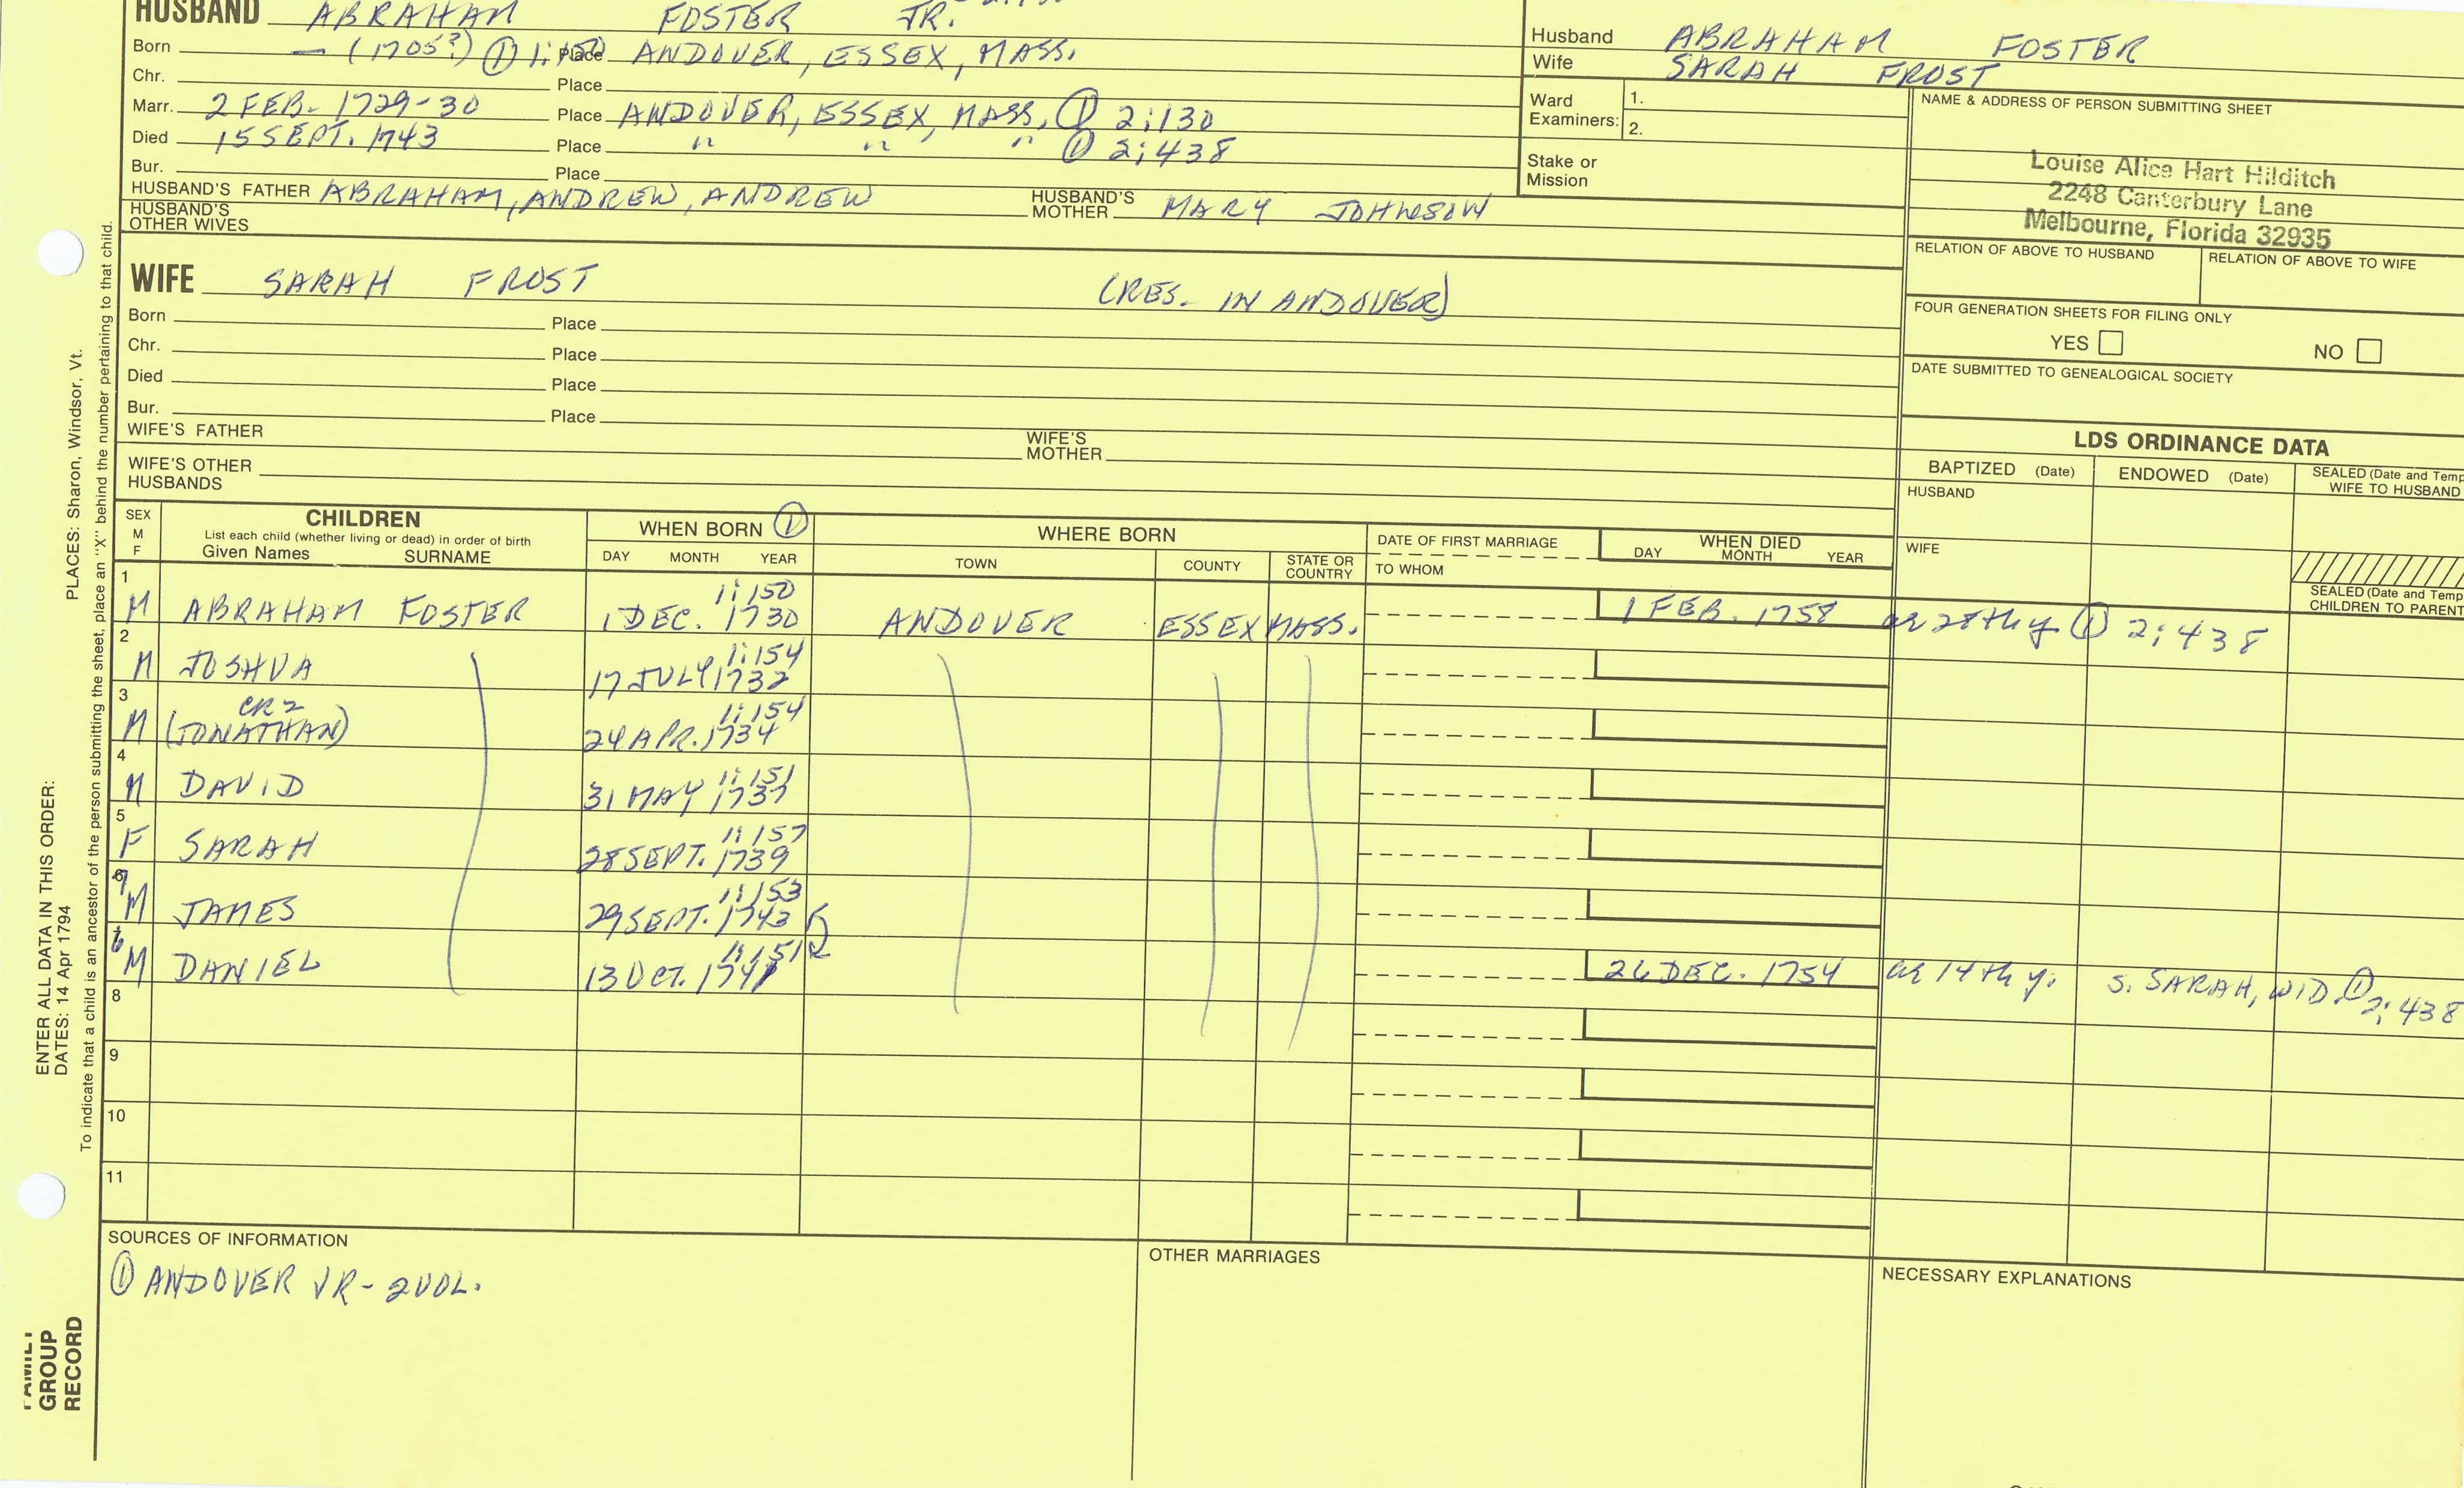 HUSBAND ABRAHAM FOSTER JR.
Born — (1705?) ① 1:150 Place ANDOVER, ESSEX, MASS.
Chr. Place
Marr. 2 FEB. 1729-30 Place ANDOVER, ESSEX, MASS. ① 2:130
Died 15 SEPT. 1743 Place " " " ① 2:438
Bur. Place
HUSBAND'S FATHER ABRAHAM, ANDREW, ANDREW HUSBAND'S MOTHER MARY JOHNSON
HUSBAND'S OTHER WIVES
Husband ABRAHAM FOSTER
Wife SARAH FROST
Ward Examiners: 1.
2.
Stake or Mission
NAME & ADDRESS OF PERSON SUBMITTING SHEET
Louise Alice Hart Hilditch
2248 Canterbury Lane
Melbourne, Florida 32935
RELATION OF ABOVE TO HUSBAND RELATION OF ABOVE TO WIFE
FOUR GENERATION SHEETS FOR FILING ONLY
YES NO
DATE SUBMITTED TO GENEALOGICAL SOCIETY
WIFE SARAH FROST (RES. IN ANDOVER)
Born Place
Chr. Place
Died Place
Bur. Place
WIFE'S FATHER WIFE'S MOTHER
WIFE'S OTHER HUSBANDS
LDS ORDINANCE DATA
BAPTIZED (Date) ENDOWED (Date) SEALED (Date and Temp
WIFE TO HUSBAND
HUSBAND
WIFE
SEALED (Date and Temp
CHILDREN TO PARENT
SEX M F
CHILDREN
List each child (whether living or dead) in order of birth
Given Names SURNAME
WHEN BORN ①
DAY MONTH YEAR
WHERE BORN
TOWN COUNTY STATE OR COUNTRY
DATE OF FIRST MARRIAGE
TO WHOM
WHEN DIED
DAY MONTH YEAR
1 M ABRAHAM FOSTER 1:150 1 DEC. 1730 ANDOVER ESSEX MASS. 1 FEB. 1758 as 28th y. ① 2:438
2 M JOSHUA 1:154 17 JULY 1732
3 M CR2 (JONATHAN) 1:154 24 APR. 1734
4 M DAVID 1:151 31 MAY 1737
5 F SARAH 1:157 28 SEPT. 1739
7 M JAMES 1:153 29 SEPT. 1743
6 M DANIEL 1:151 13 OCT. 1741 26 DEC. 1754 as 14th y. S. SARAH, WID. ① 2:438
8
9
10
11
SOURCES OF INFORMATION
① ANDOVER VR - 2 VOL.
OTHER MARRIAGES
NECESSARY EXPLANATIONS
ENTER ALL DATA IN THIS ORDER:
DATES: 14 Apr 1794 PLACES: Sharon, Windsor, Vt.
To indicate that a child is an ancestor of the person submitting the sheet, place an "X" behind the number pertaining to that child.
FAMILY
GROUP
RECORD